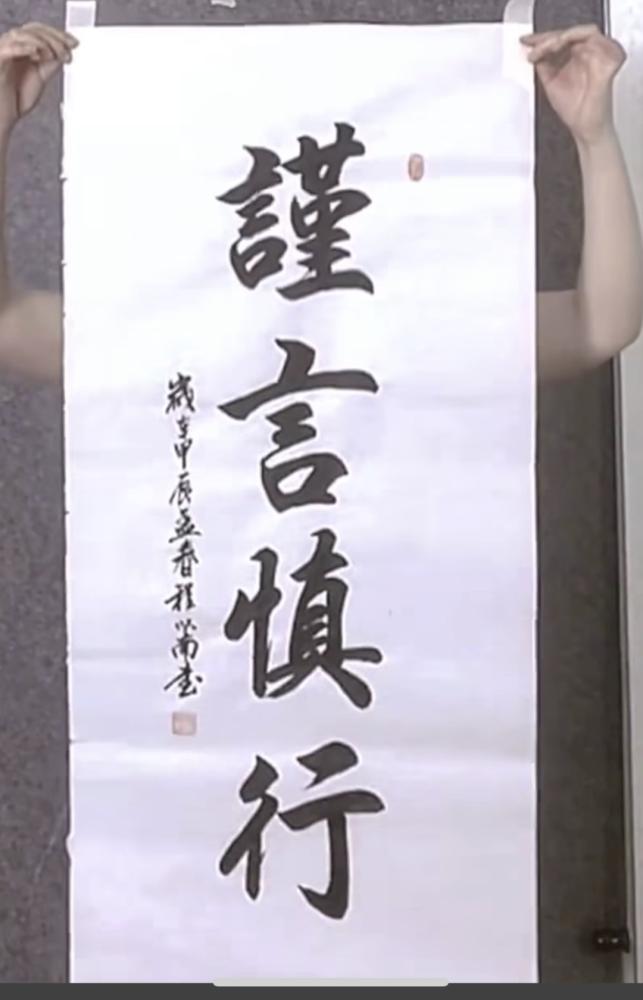 謹言慎行
歲在甲辰孟春程尚書